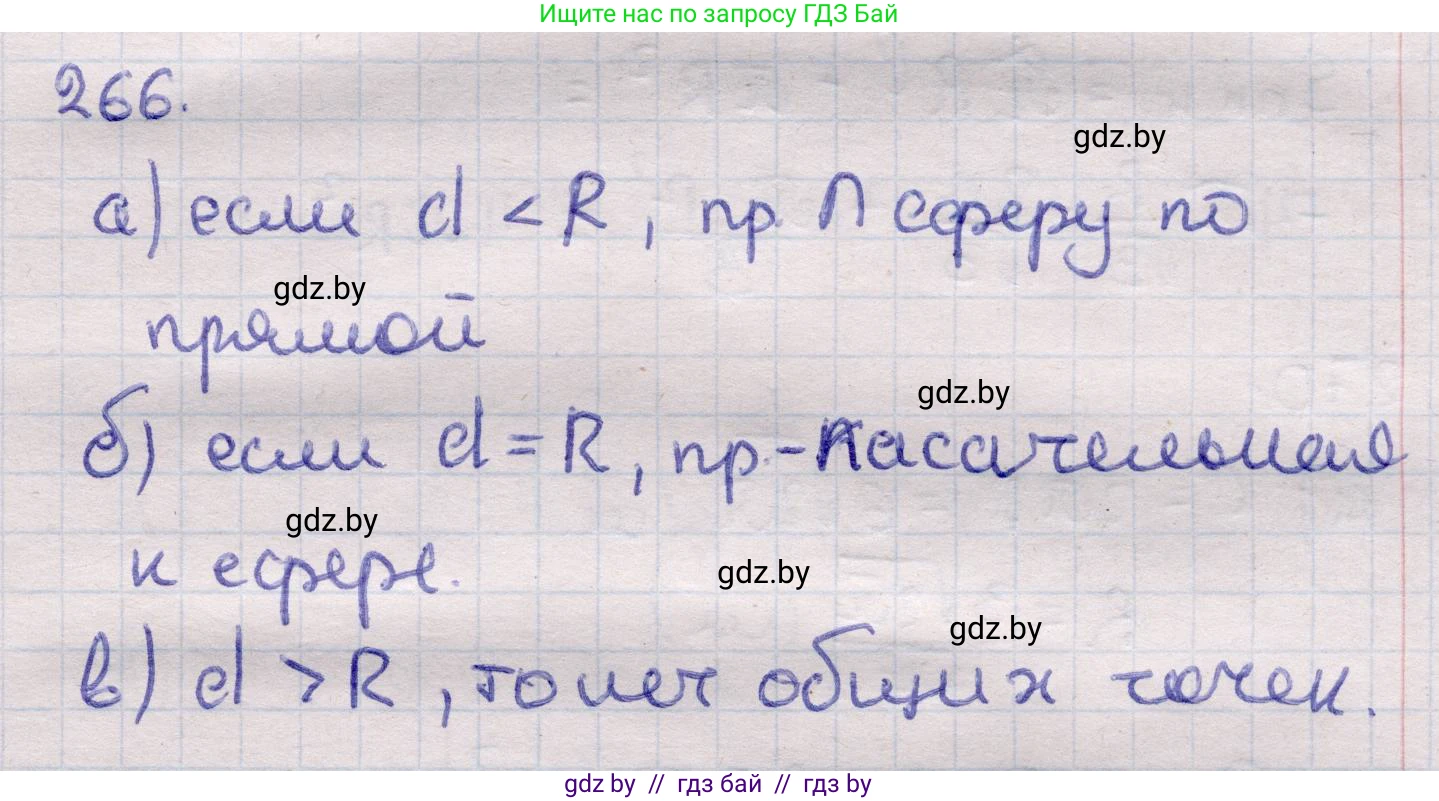 Ищите нас по запросу ГДЗ Бай
266.
gdz.by
а) если d < R, пр. ∩ сферу по
gdz.by
прямой
gdz.by
б) если d = R, пр.-касательная
gdz.by
к сфере.
gdz.by
gdz.by
в) d > R, то нет общих точек.
gdz.by // гдз бай // гдз by